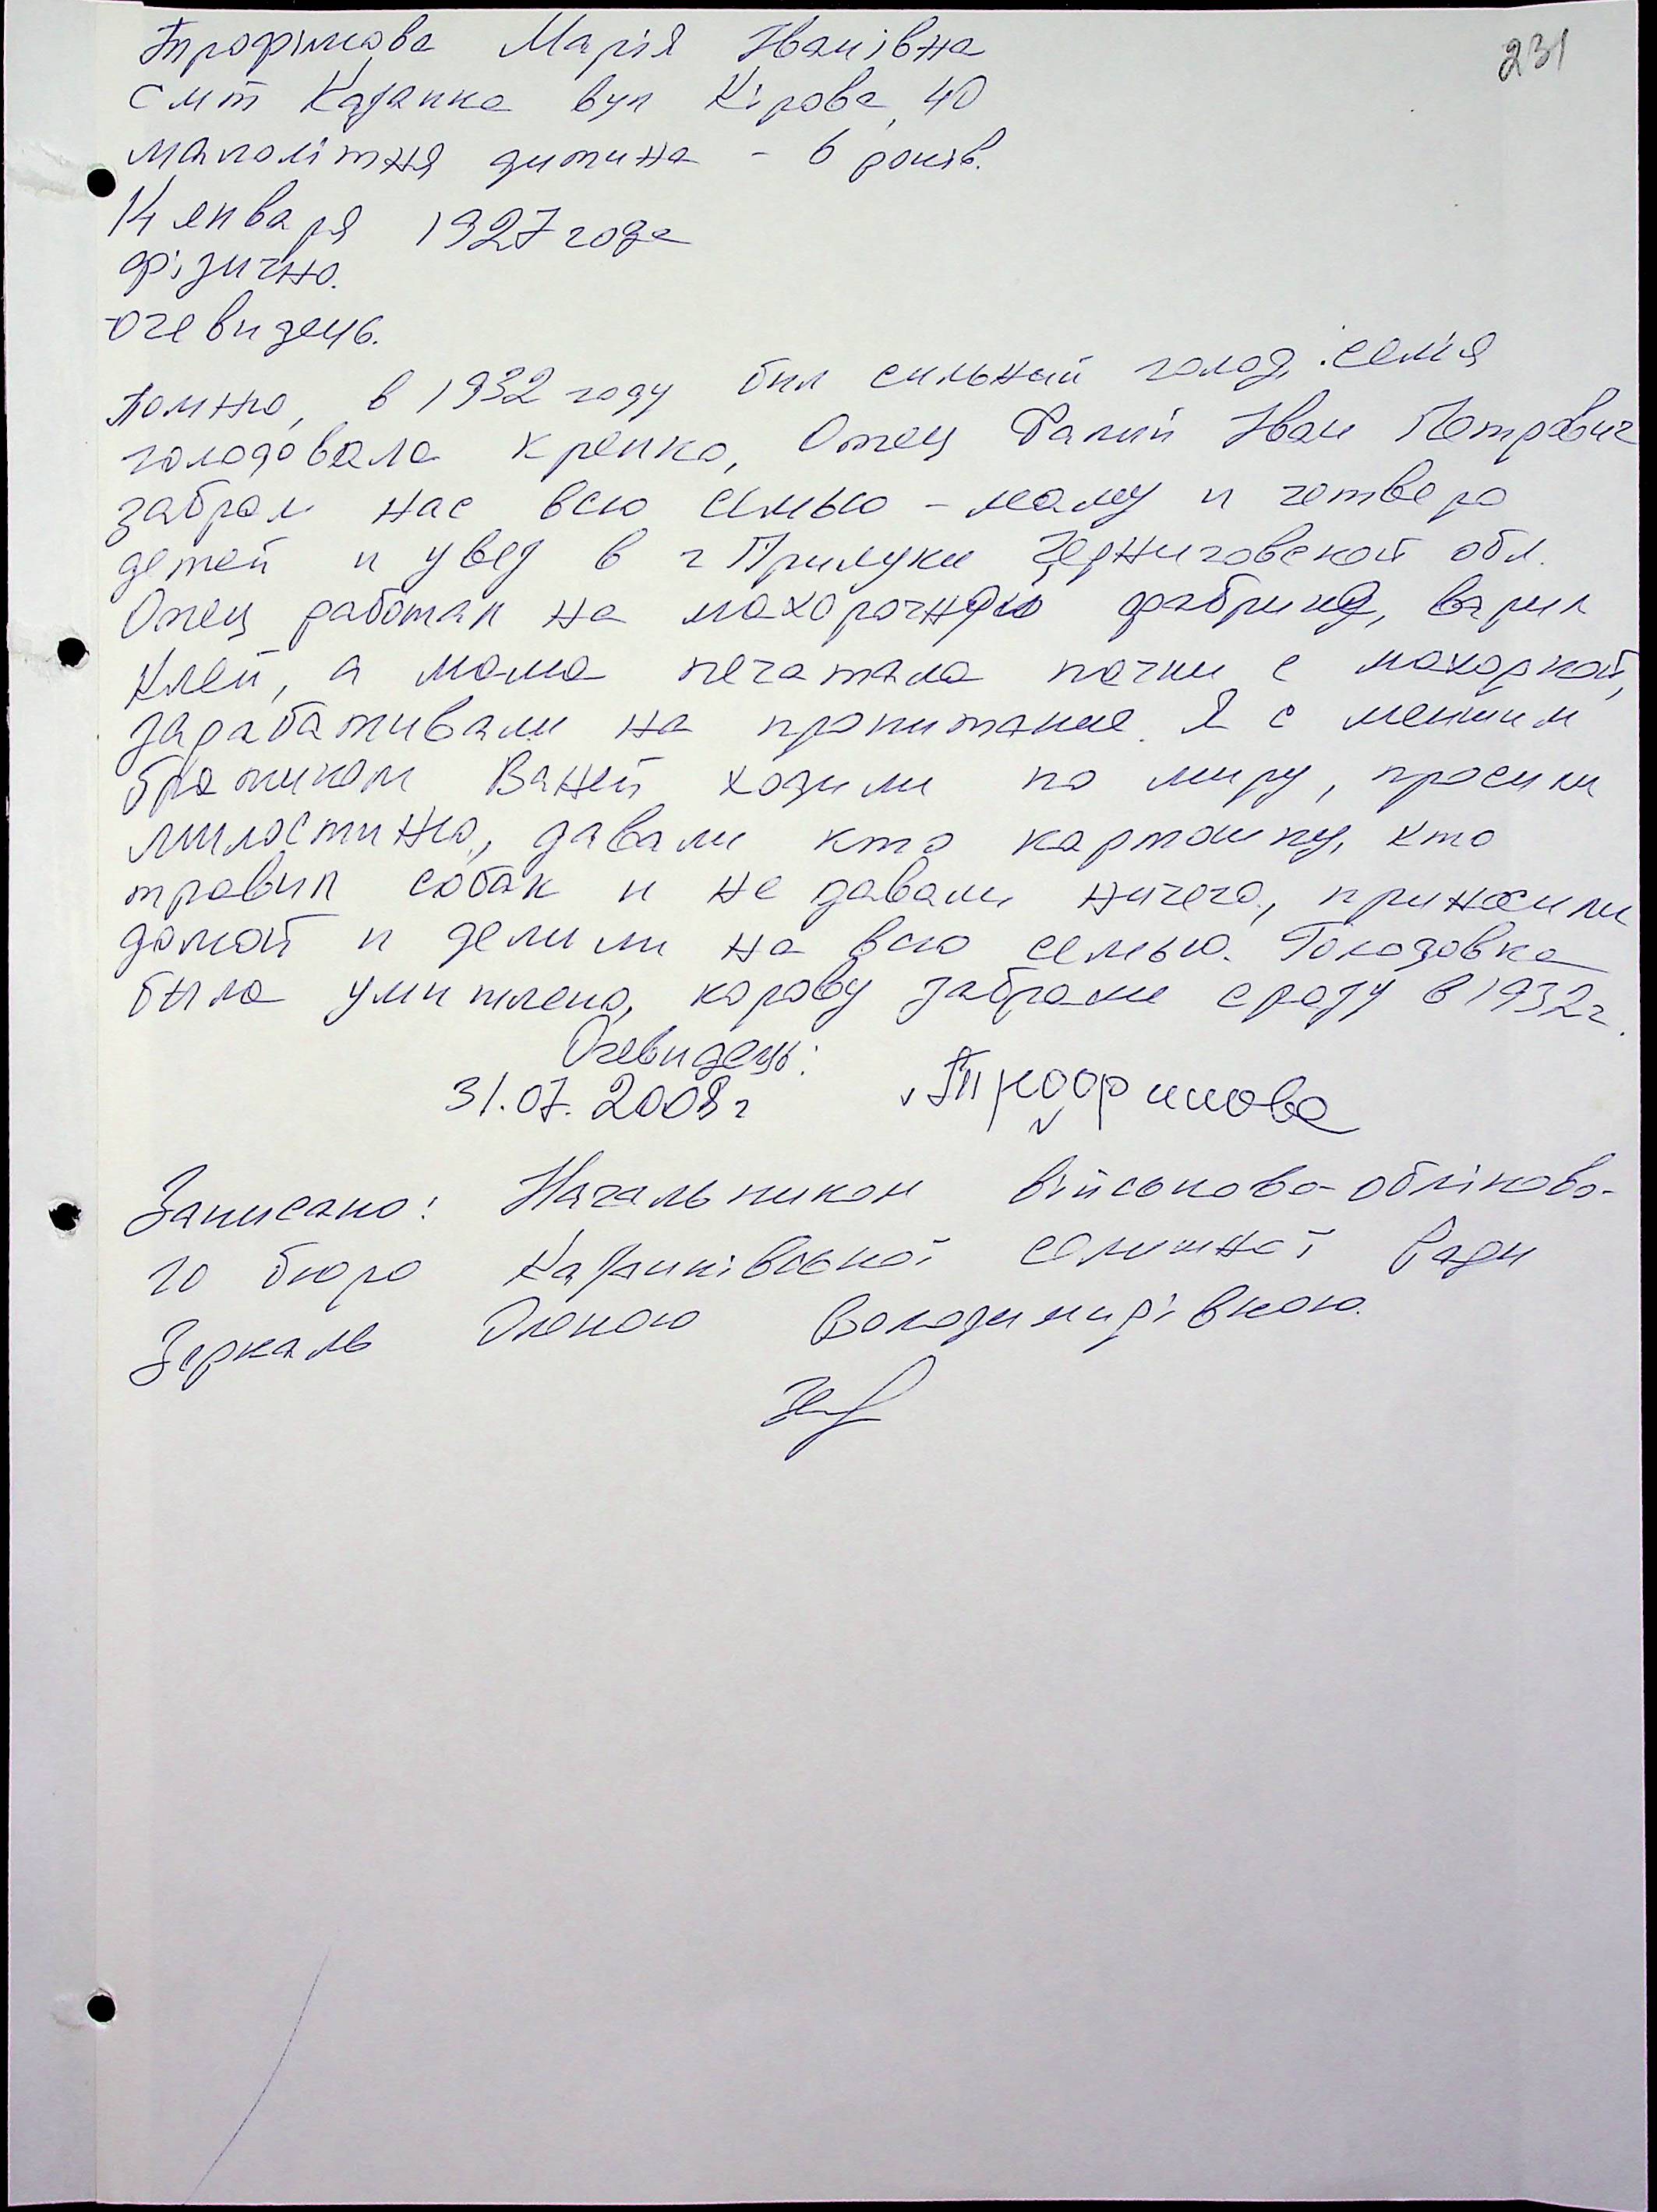 231
Трофімова Марія Іванівна
смт Казанка вул Кірова, 40
малолітня дитина - 6 років.
14 января 1927 года
фізично.
очевидець.
Помню, в 1932 году был сильный голод, семія
голодовала крепко, Отец Фалий Иван Петрович
забрал нас всю семью - маму и четверо
детей и увез в г Прилуки Черниговской обл.
Отец работал на махорочную фабрику, варил
клей, а мама печатала пачки с махоркой,
зарабативали на пропитание. Я с меншим
братиком Ваней ходили по миру, просили
милостиню, давали кто картошку, кто
травил собак и не давали ничего, приносили
домой и делили на всю семью. Голодовка
была умишлено, корову забрали сразу в 1932г.
Очевидець:
31.07.2008г Трофимова
Записано: Начальником військово-обліково-
го бюро Казанківської селишної Ради
Зеркаль Оленою Володимирівною.